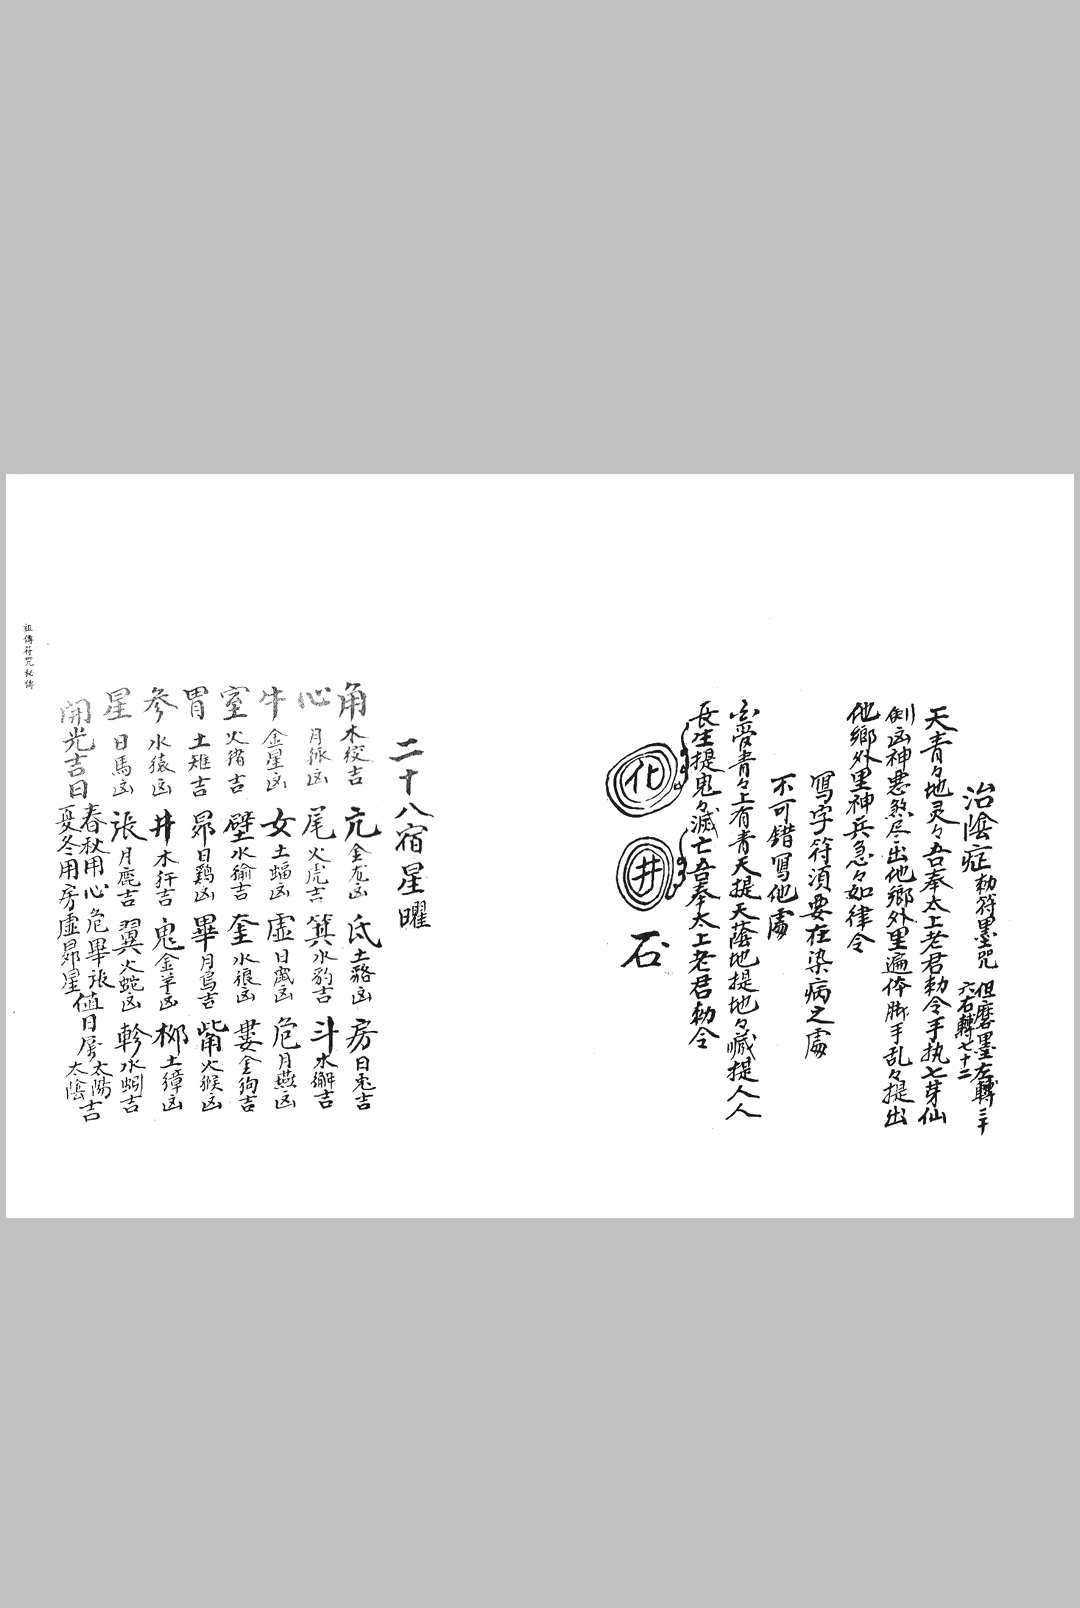 治陰症勅符墨咒 但磨墨左轉三十六右轉七十二
天青々地灵々吾奉太上老君勅令手执七芽仙
剑凶神悪煞尽出他鄉外里遍体脚手乱々提出
他鄉外里神兵急々如律令
寫字符須要在染病之處
不可錯寫他處
青々上有青天提天蔭地提地々臓提人人
長生提鬼々滅亡吾奉太上老君勅令
化
井
石
二十八宿星曜
角木绞吉 亢金龙凶 氐土貉凶 房日兎吉
心月狐凶 尾火虎吉 箕水豹吉 斗水獬吉
牛金星凶 女土蝠凶 虚日鼠凶 危月燕凶
室火猪吉 壁水貐吉 奎水狼凶 婁金狗吉
胃土雉吉 昴日鷄凶 畢月烏吉 觜火猴凶
参水猿凶 井木犴吉 鬼金羊凶 柳土獐凶
星日馬凶 張月鹿吉 翼火蛇凶 軫水蚓吉
開光吉日 春秋用心危畢張 夏冬用房虚昴星 值日屬太陽太陰吉
祖傳符咒秘傳